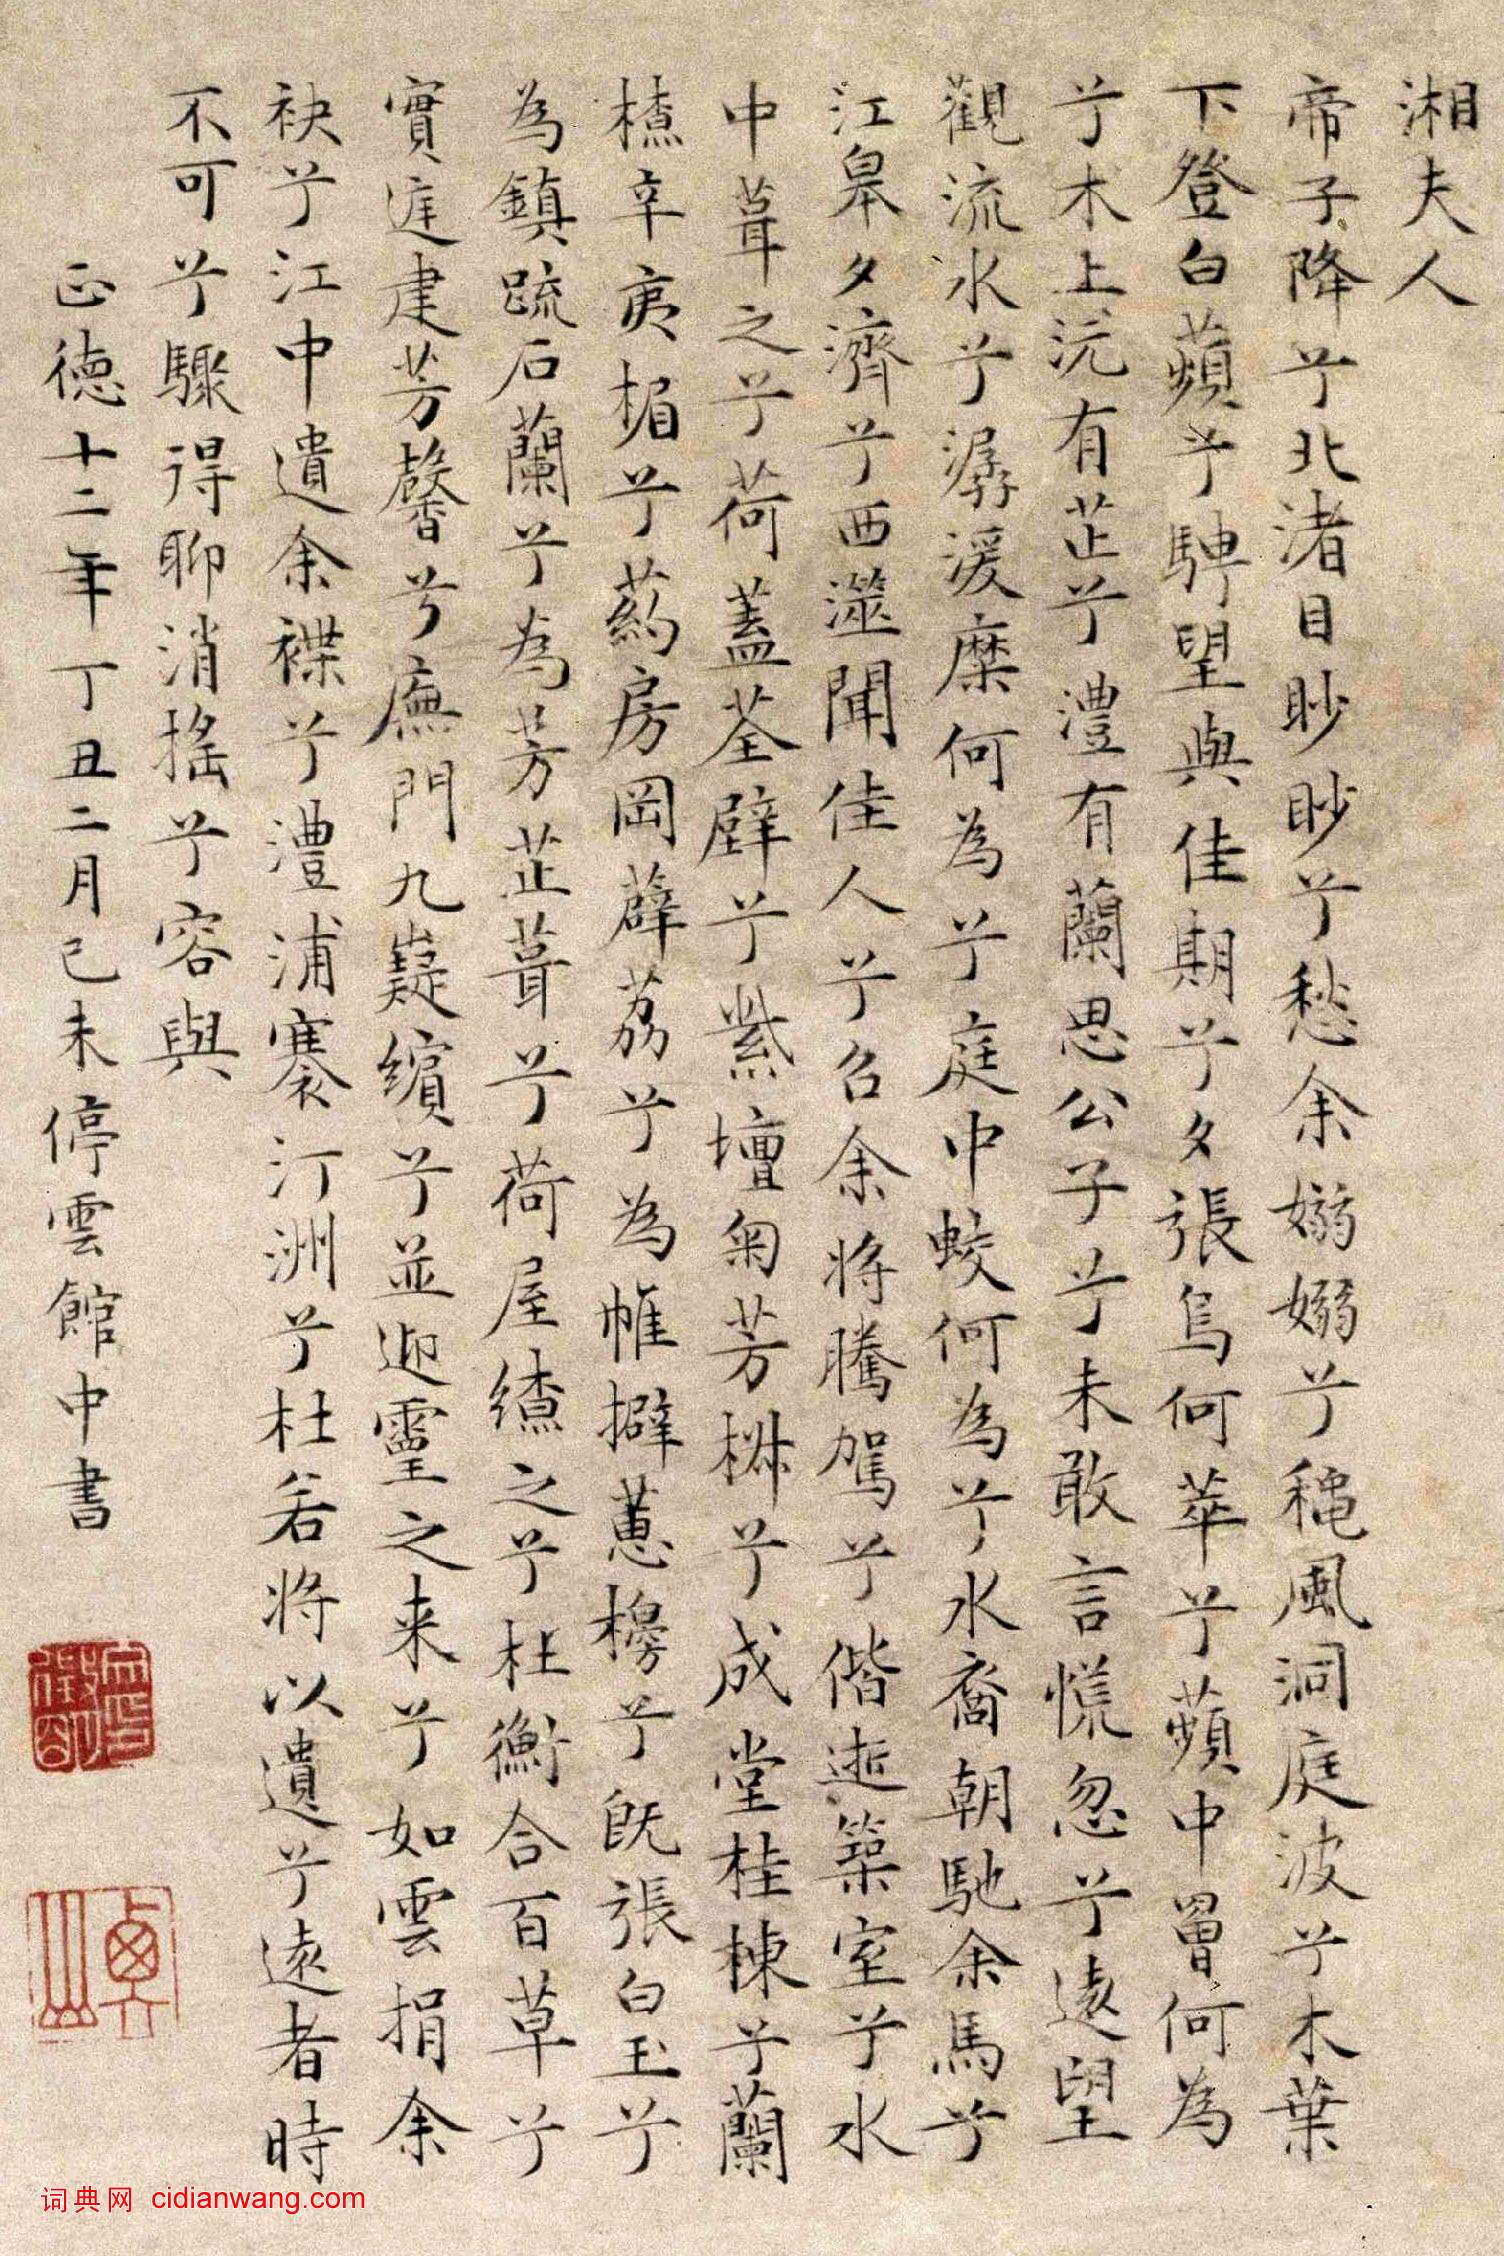 湘夫人
帝子降兮北渚目眇眇兮愁余嫋嫋兮穐風洞庭波兮木葉
下登白蘋兮騁望與佳期兮夕張鳥何萃兮蘋中罾何為
兮木上沅有芷兮澧有蘭思公子兮未敢言慌忽兮遠望
觀流水兮潺湲麋何為兮庭中蛟何為兮水裔朝馳余馬兮
江皋夕濟兮西澨聞佳人兮召余將騰駕兮偕逝築室兮水
中葺之兮荷蓋荃壁兮紫壇匊芳椒兮成堂桂棟兮蘭
橑辛夷楣兮葯房罔薜荔兮為帷擗蕙櫋兮既張白玉兮
為鎮疏石蘭兮為芳芷葺兮荷屋繚之兮杜衡合百草兮
實庭建芳馨兮廡門九嶷繽兮並迎靈之来兮如雲捐余
袂兮江中遺余褋兮澧浦搴汀洲兮杜若將以遺兮遠者時
不可兮驟得聊消搖兮容與
正德十二年丁丑二月己未停雲館中書
词典网 cidianwang.com